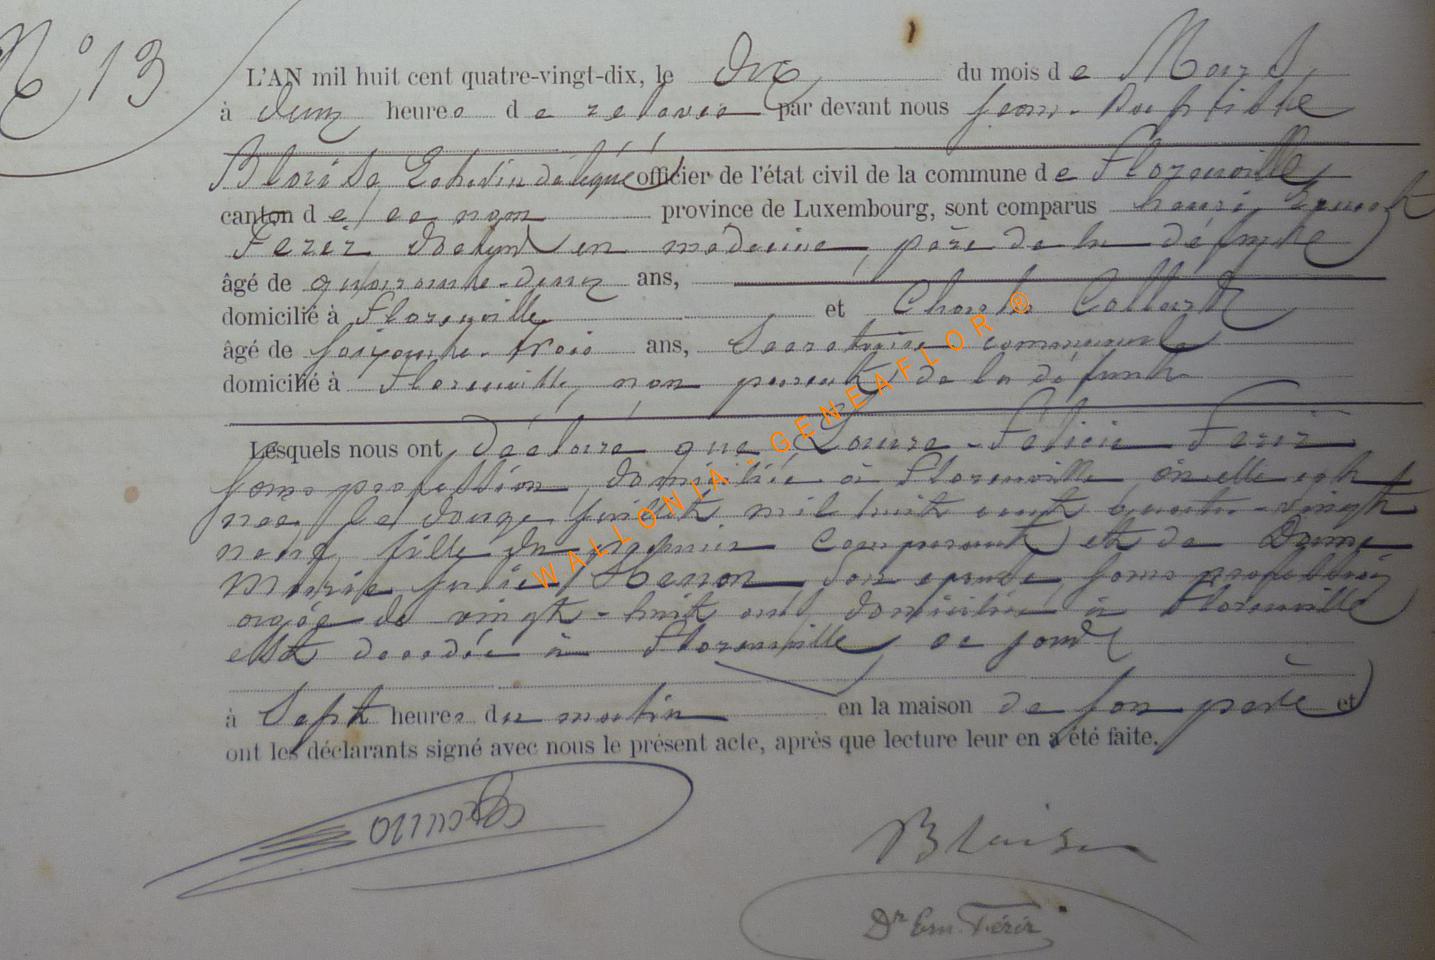 N° 13
L'AN mil huit cent quatre-vingt-dix, le dix du mois de Mars
à deux heures de relevée par devant nous Jean-Baptiste
Blaise Echevin délégué officier de l'état civil de la commune de Florenville
canton de ce nom province de Luxembourg, sont comparus henri, Ernest
Ferir docteur en médecine, père de la défunte
âgé de quarante-deux ans,
domicilié à Florenville et Charles Collard
âgé de soixante-trois ans, Secrétaire communal
domicilié à Florenville, non parent de la défunte
Lesquels nous ont déclaré que Laure-Félicie Ferir
sans profession, domiciliée à Florenville où elle est
née le douze juillet mil huit cent quatre-vingt
neuf fille du premier comparant et de Dame
Marie Henon son épouse sans profession
agée de vingt-huit ans domiciliée à Florenville
est décédée à Florenville ce jour
à Sept heures du matin en la maison de son père et
ont les déclarants signé avec nous le présent acte, après que lecture leur en a été faite.
Blaise
Dr Ern. Férir
WALLONIA-GENEAFLOR ®